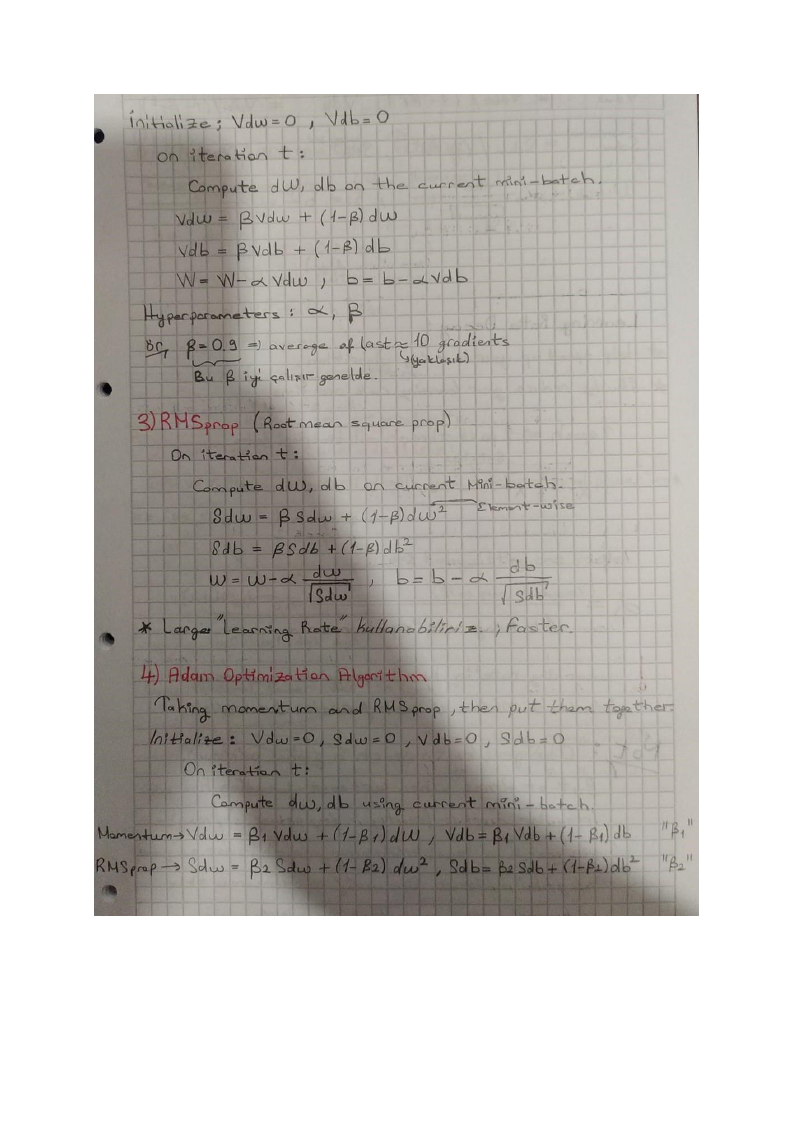 initialize; Vdw=0 , Vdb=0
on iteration t:
Compute dW, db on the current mini-batch.
Vdw = βVdw + (1-β) dw
Vdb = βVdb + (1-β) db
W= W-αVdw , b= b-αVdb
Hyperparameters : α, β
Ör, β=0.9 => average of last ≈ 10 gradients
↳(yaklaşık)
Bu β iyi çalışır genelde.
3) RMSprop (Root mean square prop)
On iteration t:
Compute dW, db on current Mini-batch.
Sdw = β Sdw + (1-β)dw² Element-wise
Sdb = βSdb + (1-β) db²
W = W-α dw/√Sdw , b= b-α db/√Sdb
* Large "learning Rate" kullanabiliriz. ; faster.
4) Adam Optimization Algorithm
Taking momentum and RMSprop , then put them together.
Initialize : Vdw=0, Sdw=0 , Vdb=0 , Sdb=0
On iteration t:
Compute dw, db using current mini-batch.
Momentum→Vdw = β1 Vdw + (1-β1)dW , Vdb=β1 Vdb+(1-β1) db "β1"
RMSprop → Sdw= β2 Sdw + (1-β2) dw² , Sdb= β2 Sdb+(1-β2)db² "β2"